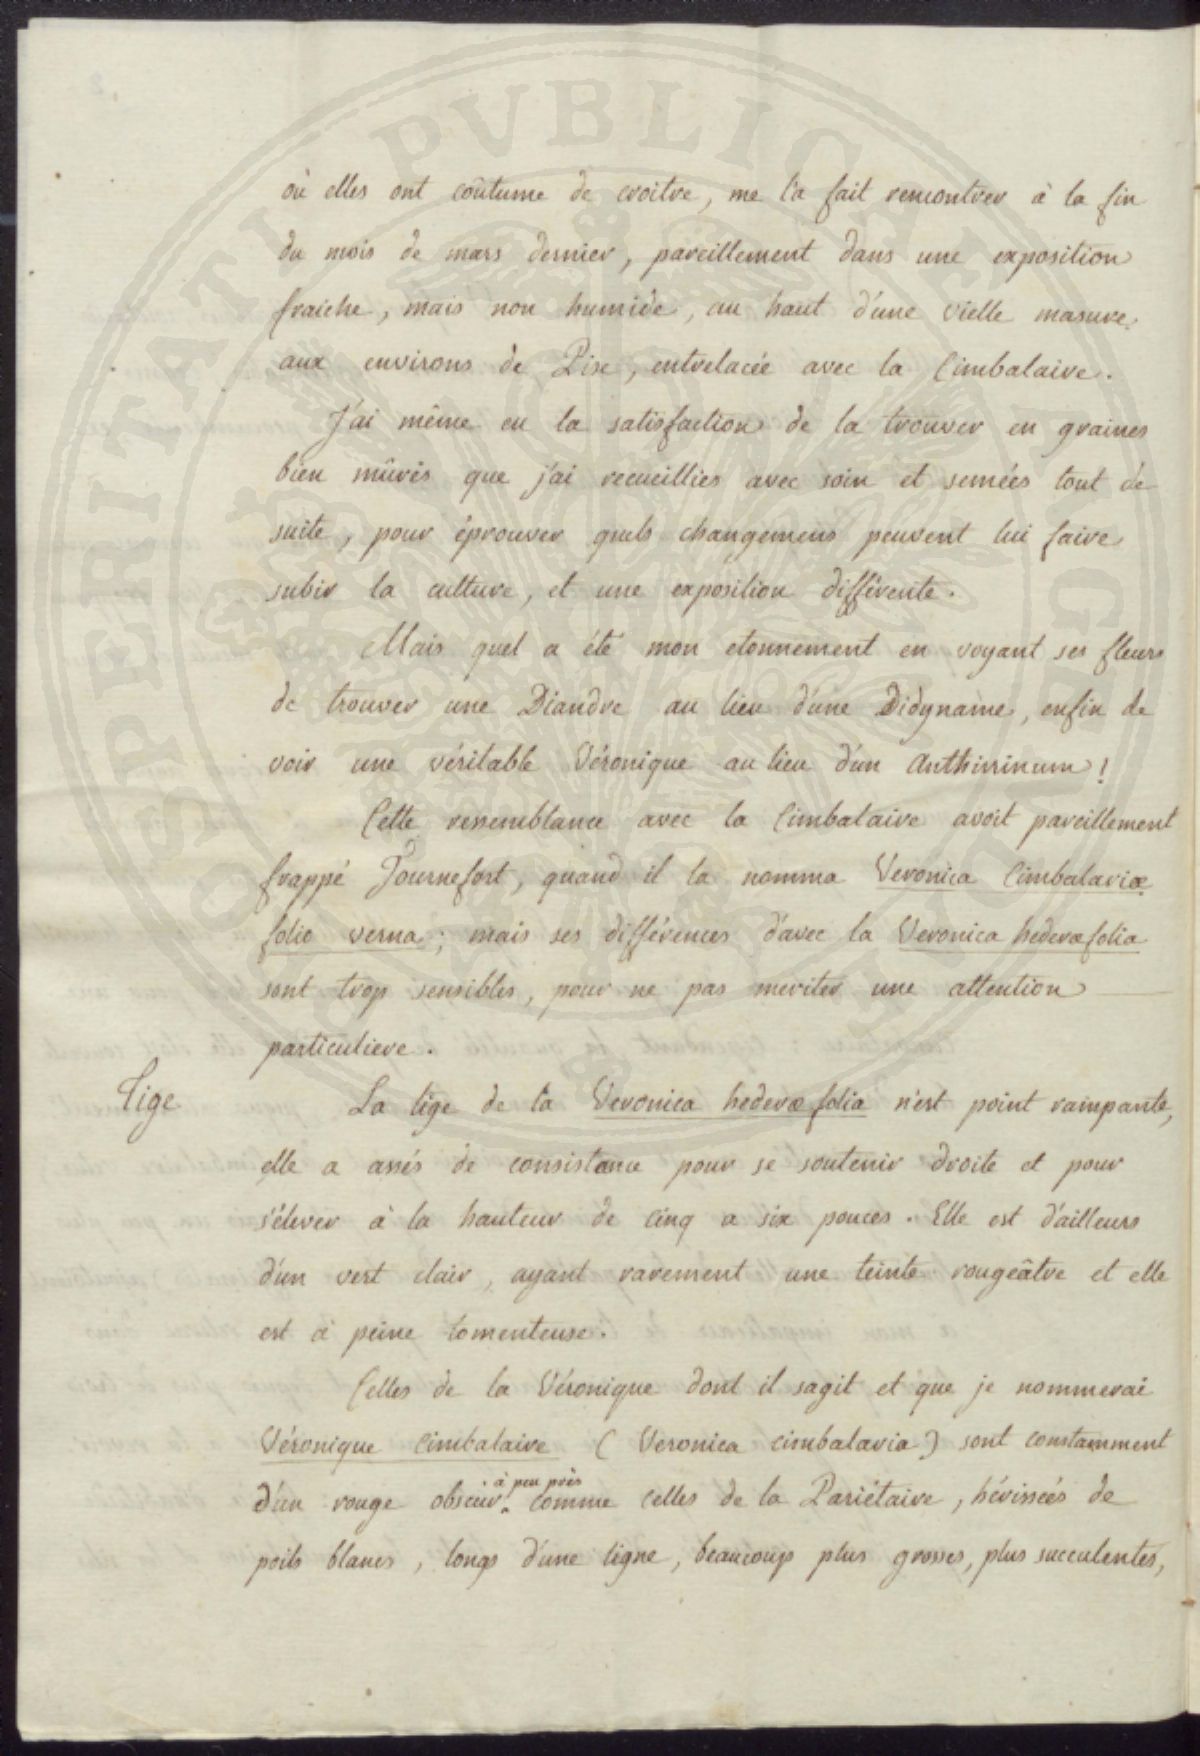 où elles ont coûtume de croitre, me l'a fait rencontrer à la fin
du mois de mars dernier, pareillement dans une exposition
fraiche, mais non humide, au haut d'une vielle masure
aux environs de Pise, entrelacée avec la Cimbalaire.
J'ai même eu la satisfaction de la trouver en graines
bien mûres que j'ai recueillies avec soin et semées tout de
suite, pour éprouver quels changemens peuvent lui faire
subir la culture, et une exposition différente.
Mais quel a été mon etonnement en voyant ses fleurs
de trouver une Diandre au lieu d'une Didyname, enfin de
voir une véritable Véronique au lieu d'un Anthirrinum!
Cette ressemblance avec la Cimbalaire avoit pareillement
frappé Tournefort, quand il la nomma Veronica Cimbalariæ
folio verna; mais ses différences d'avec la Veronica hederæfolia
sont trop sensibles, pour ne pas meriter une attention
particuliere.
Tige
La tige de la Veronica hederæfolia n'est point rampante,
elle a assés de consistance pour se soutenir droite et pour
s'élever à la hauteur de cinq a six pouces. Elle est d'ailleurs
d'un vert clair, ayant rarement une teinte rougeâtre et elle
est à peine tomenteuse.
Celles de la Véronique dont il sagit et que je nommerai
Véronique Cimbalaire (Veronica cimbalaria) sont constamment
à peu près
d'un rouge obscur comme celles de la Pariétaire, hérissées de
poils blancs, longs d'une ligne, beaucoup plus grosses, plus succulentes,
PROSPERITATI PUBLICAE AUGENDAE